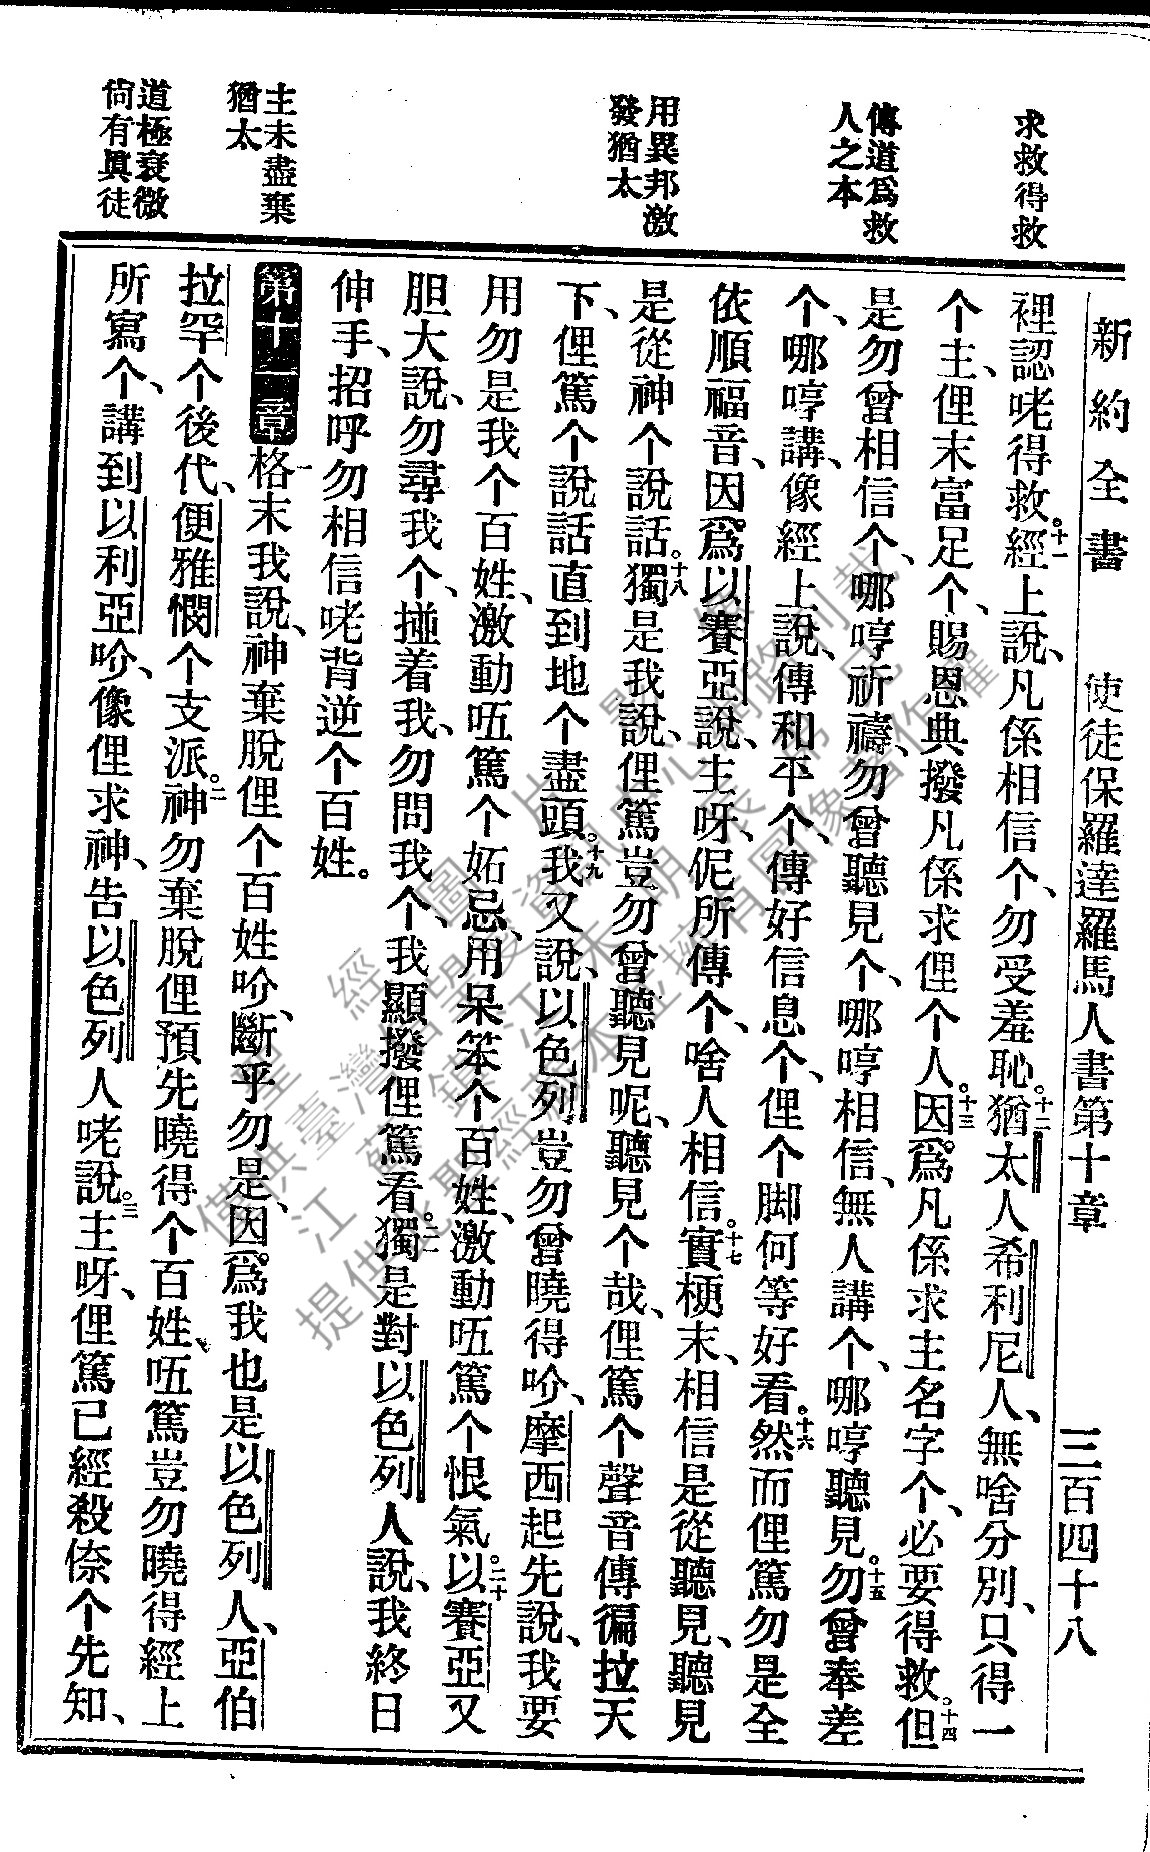 新約全書　使徒保羅達羅馬人書第十章　三百四十八
求救得救
傳道爲救
人之本
用異邦激
發猶太
主未盡棄
猶太
道極衰微
尙有眞徒
裡認咾得救。十一經上說、凡係相信个、勿受羞恥。十二猶太人希利尼人、無啥分別、只得一
个主、俚末富足个、賜恩典撥凡係求俚个人。十三因爲凡係求主名字个、必要得救。十四但
是勿曾相信个、哪哼祈禱、勿曾聽見个、哪哼相信、無人講个、哪哼聽見。十五勿曾奉差
个、哪哼講、像經上說、傳和平个、傳好信息个、俚个脚何等好看。十六然而俚篤勿是全
依順福音、因爲以賽亞說、主呀、伲所傳个、啥人相信。十七實梗末、相信是從聽見、聽見
是從神个說話。十八獨是我說、俚篤豈勿曾聽見呢、聽見个哉、俚篤个聲音傳徧拉天
下、俚篤个說話直到地个盡頭。十九我又說、以色列豈勿曾曉得吤、摩西起先說、我要
用勿是我个百姓、激動㕶篤个妬忌、用呆笨个百姓、激動㕶篤个恨氣。二十以賽亞又
胆大說、勿尋我个、掽着我、勿問我个、我顯撥俚篤看。二一獨是對以色列人說、我終日
伸手、招呼勿相信咾背逆个百姓。
第十一章一格末我說、神棄脫俚个百姓吤、斷乎勿是、因爲我也是以色列人、亞伯
拉罕个後代、便雅憫个支派。二神勿棄脫俚預先曉得个百姓、㕶篤豈勿曉得經上
所寫个、講到以利亞吤、像俚求神、告以色列人咾說。三主呀、俚篤已經殺倷个先知、
聖經圖片影像
僅供臺灣信望愛資訊中心網路刊載
江蘇鎮江朱明辰弟兄
提供此聖經版本並擁有圖像著作權